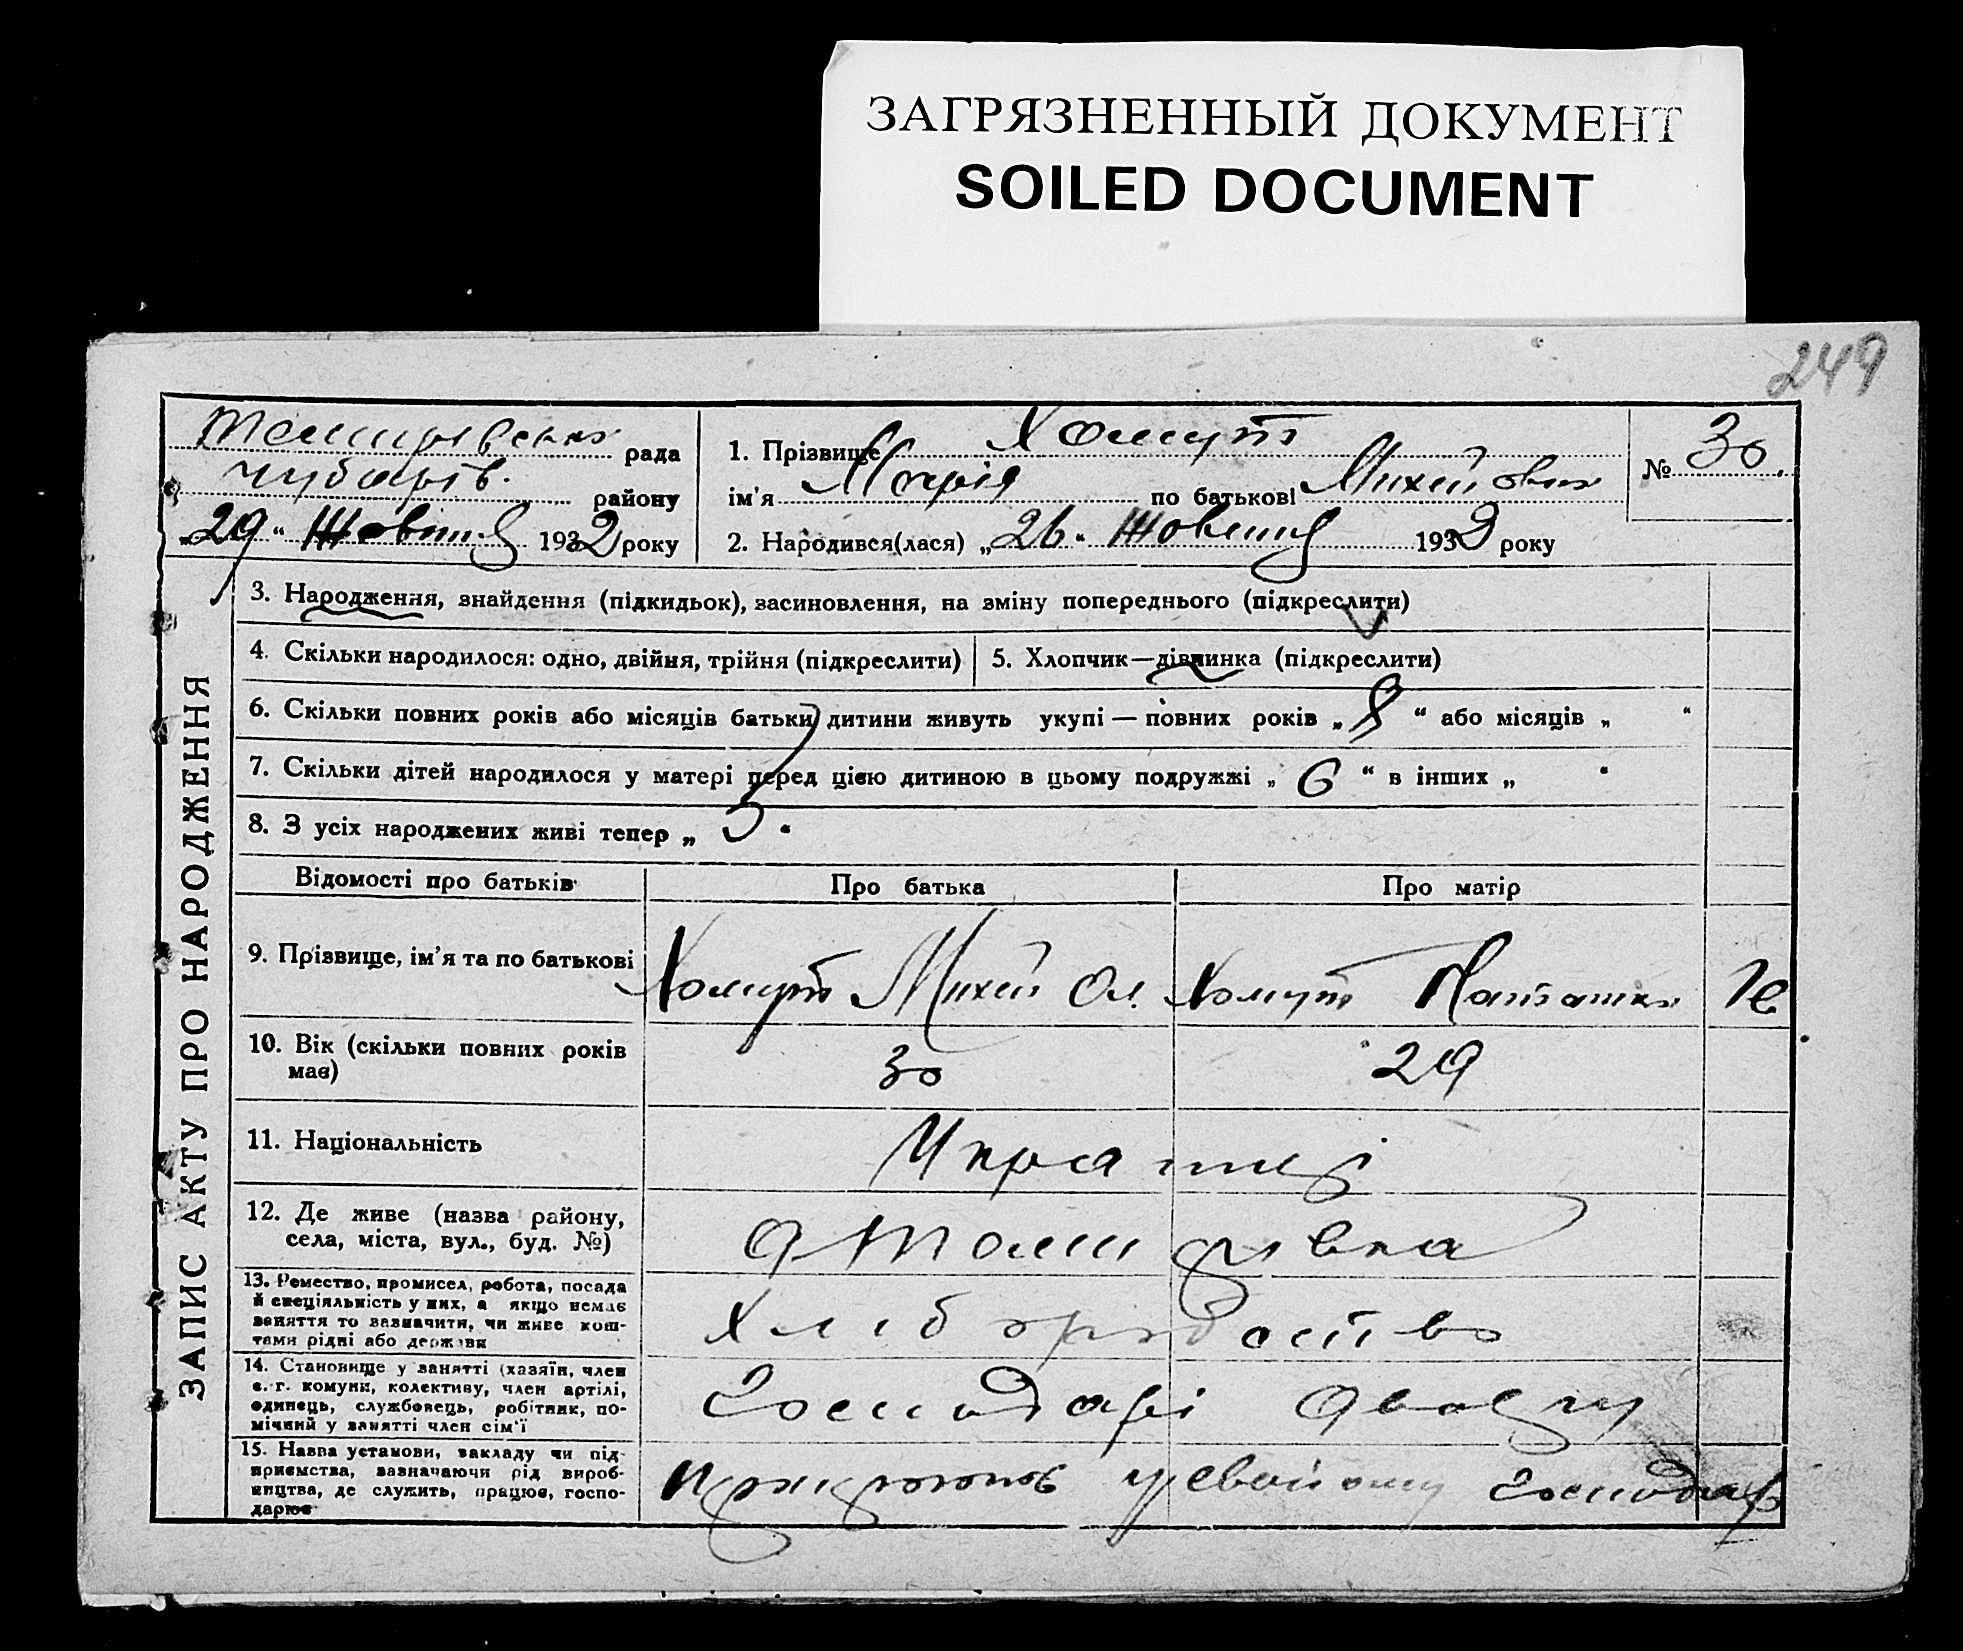 ЗАГРЯЗНЕННЫЙ ДОКУМЕНТ
SOILED DOCUMENT
249
рада
Чубарів. району
„29“ Жовтня 1932 року
1. Прізвище Хомут
ім'я Марія по батькові Михейовна
2. Народився(лася) „26“ Жовтня 1932 року
№ 30.
ЗАПИС АКТУ ПРО НАРОДЖЕННЯ
3. Народження, знайдення (підкидьок), засиновлення, на зміну попереднього (підкреслити)
4. Скільки народилося: одно, двійня, трійня (підкреслити)
5. Хлопчик—дівчинка (підкреслити)
6. Скільки повних років або місяців батьки дитини живуть укупі — повних років „8“ або місяців „ “
7. Скільки дітей народилося у матері перед цією дитиною в цьому подружжі „6“ в інших „ “
8. З усіх народжених живі тепер „ “
Відомості про батьків
Про батька
Про матір
9. Прізвище, ім'я та по батькові
Хомут Михей Ол.
Хомут Наташка
10. Вік (скільки повних років
має)
30
29
11. Національність
Українці
12. Де живе (назва району,
села, міста, вул., буд. №)
13. Ремество, промисел, робота, посада
й спеціяльність у них, а якщо немає
заняття то зазначити, чи живе кош-
тами рідні або держави
Хліборобство
14. Становище у занятті (хазяїн, член
с.-г. комуни, колективу, член артілі,
одинець, службовець, робітник, по-
мічний у занятті член сім'ї
Господарі двору
15. Назва установи, закладу чи під-
приємства, зазначаючи рід вироб-
ництва, де служить, працює, госпо-
дарює
Працюють у своїому господар